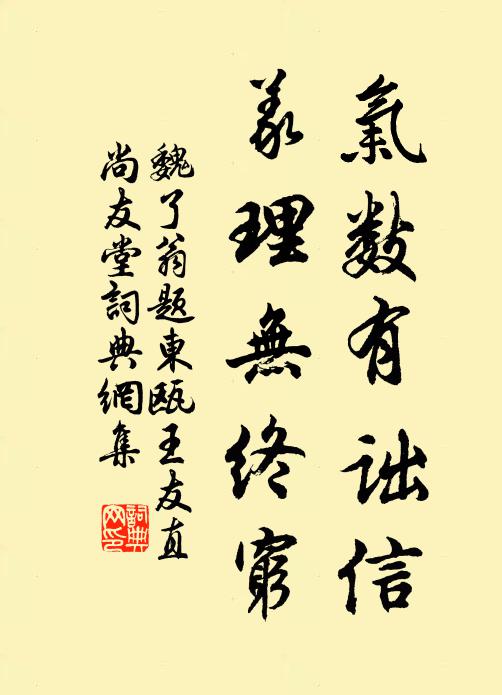 氣數有詘信
義理無終窮
魏了翁題東甌王友直
尚友堂詞典網集
詞典網印